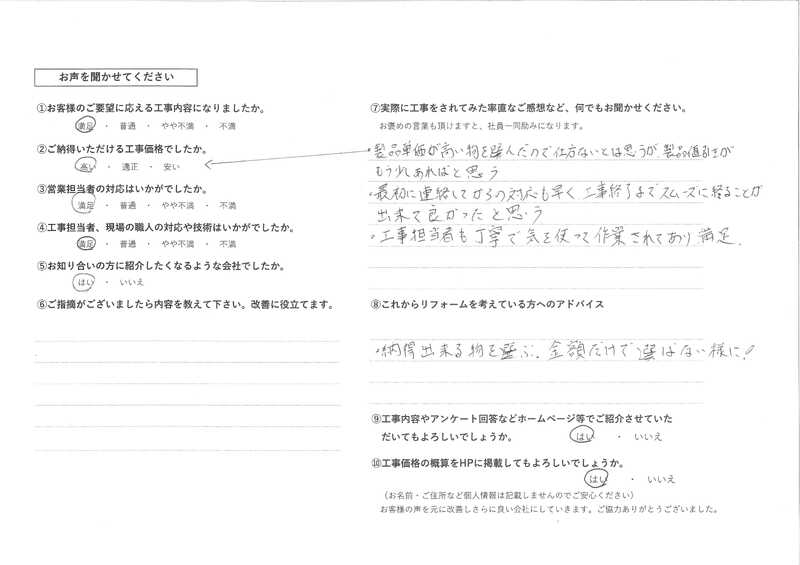 お声を聞かせてください
①お客様のご要望に応える工事内容になりましたか。
満足 ・ 普通 ・ やや不満 ・ 不満
②ご納得いただける工事価格でしたか。
高い ・ 適正 ・ 安い
③営業担当者の対応はいかがでしたか。
満足 ・ 普通 ・ やや不満 ・ 不満
④工事担当者、現場の職人の対応や技術はいかがでしたか。
満足 ・ 普通 ・ やや不満 ・ 不満
⑤お知り合いの方に紹介したくなるような会社でしたか。
はい ・ いいえ
⑥ご指摘がございましたら内容を教えて下さい。改善に役立てます。
⑦実際に工事をされてみた率直なご感想など、何でもお聞かせください。
お褒めの言葉も頂けますと、社員一同励みになります。
・製品単価が高い物を選んだので仕方ないとは思うが、製品値引きが
もう少しあればと思う
・最初に連絡してからの対応も早く工事終了までスムーズに終ることが
出来て良かったと思う
・工事担当者も丁寧で気を使って作業されており満足。
⑧これからリフォームを考えている方へのアドバイス
・納得出来る物を選ぶ、金額だけで選ばない様に!
⑨工事内容やアンケート回答などホームページ等でご紹介させていた
だいてもよろしいでしょうか。 はい ・ いいえ
⑩工事価格の概算をHPに掲載してもよろしいでしょうか。
はい ・ いいえ
（お名前・ご住所など個人情報は記載しませんのでご安心ください）
お客様の声を元に改善しさらに良い会社にしていきます。ご協力ありがとうございました。